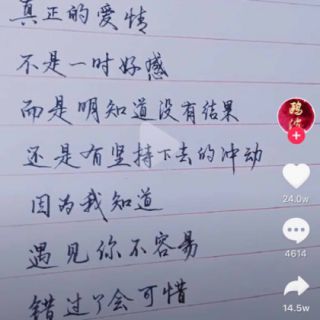 真正的爱情
不是一时好感
而是明知道没有结果
还是有坚持下去的冲动
因为我知道
遇见你不容易
错过了会可惜
24.0w
4614
14.5w